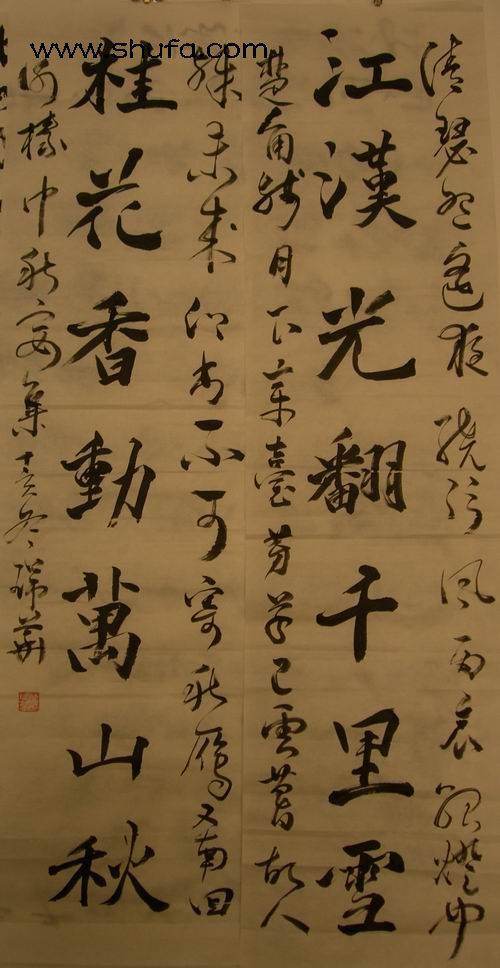 www.shufa.com
清瑟怨遙夜繞弦風雨哀孤燈聞
江漢光翻千里雪
楚角殘月下章臺芳草已雲暮故人
殊未來鄉書不可寄秋雁又南回
桂花香動萬山秋
樓中秋宴集亥冬瑞華